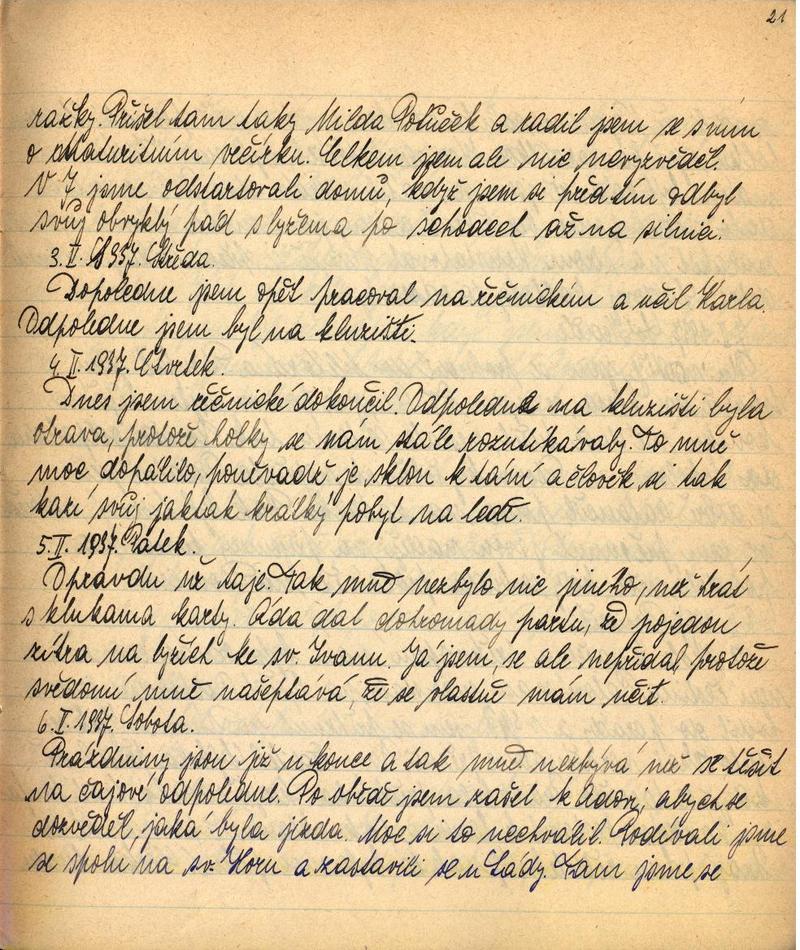 21
rážky. Přišel tam taky Milda Potůček a radil jsem se s ním
o maturitním večírku. Celkem jsem ale nic nevyzvěděl.
V 7 jsme odstartovali domů, když jsem si před tím odbyl
svůj obvyklý pád s lyžema po schodech až na silnici.
3. II. 1937. Středa.
Dopoledne jsem opět pracoval na řečnickém a učil Karla.
Odpoledne jsem byl na kluzišti.
4. II. 1937. Čtvrtek.
Dnes jsem řečnické dokončil. Odpoledne na kluzišti byla
otrava, protože holky se nám stále rozutíkávaly. To mně
moc dopálilo, poněvadž je sklon k tání a člověk si tak
kazí svůj jaktak krátký pobyt na ledě.
5. II. 1937. Pátek.
Opravdu už taje. Tak mně nezbylo nic jiného, než hrát
s klukama karty. Áda dal dohromady partu, že pojedou
zítra na lyžích ke sv. Ivanu. Já jsem se ale nepřidal, protože
svědomí mně našeptává, že se vlastně mám učit.
6. II. 1937. Sobota.
Prázdniny jsou již u konce a tak mně nezbývá než se těšit
na čajové odpoledne. Po obědě jsem zašel k Ádovi, abych se
dozvěděl, jaká byla jízda. Moc si to nechválil. Podívali jsme
se spolu na sv. Horu a zastavili se u Lády. Tam jsme se